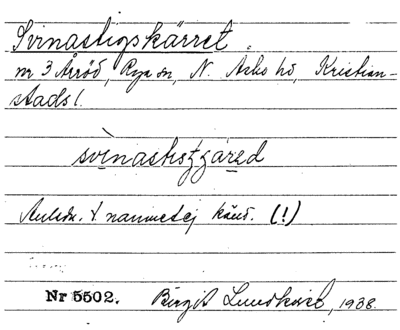 Svinastigskärret.
nr 3 Årröd, Rya sn, N. Åsbo hd, Kristian-
stads l.
Anledn. t. namnet ej känd. (!)
Nr 5502. Birgit Lundkvist, 1938.